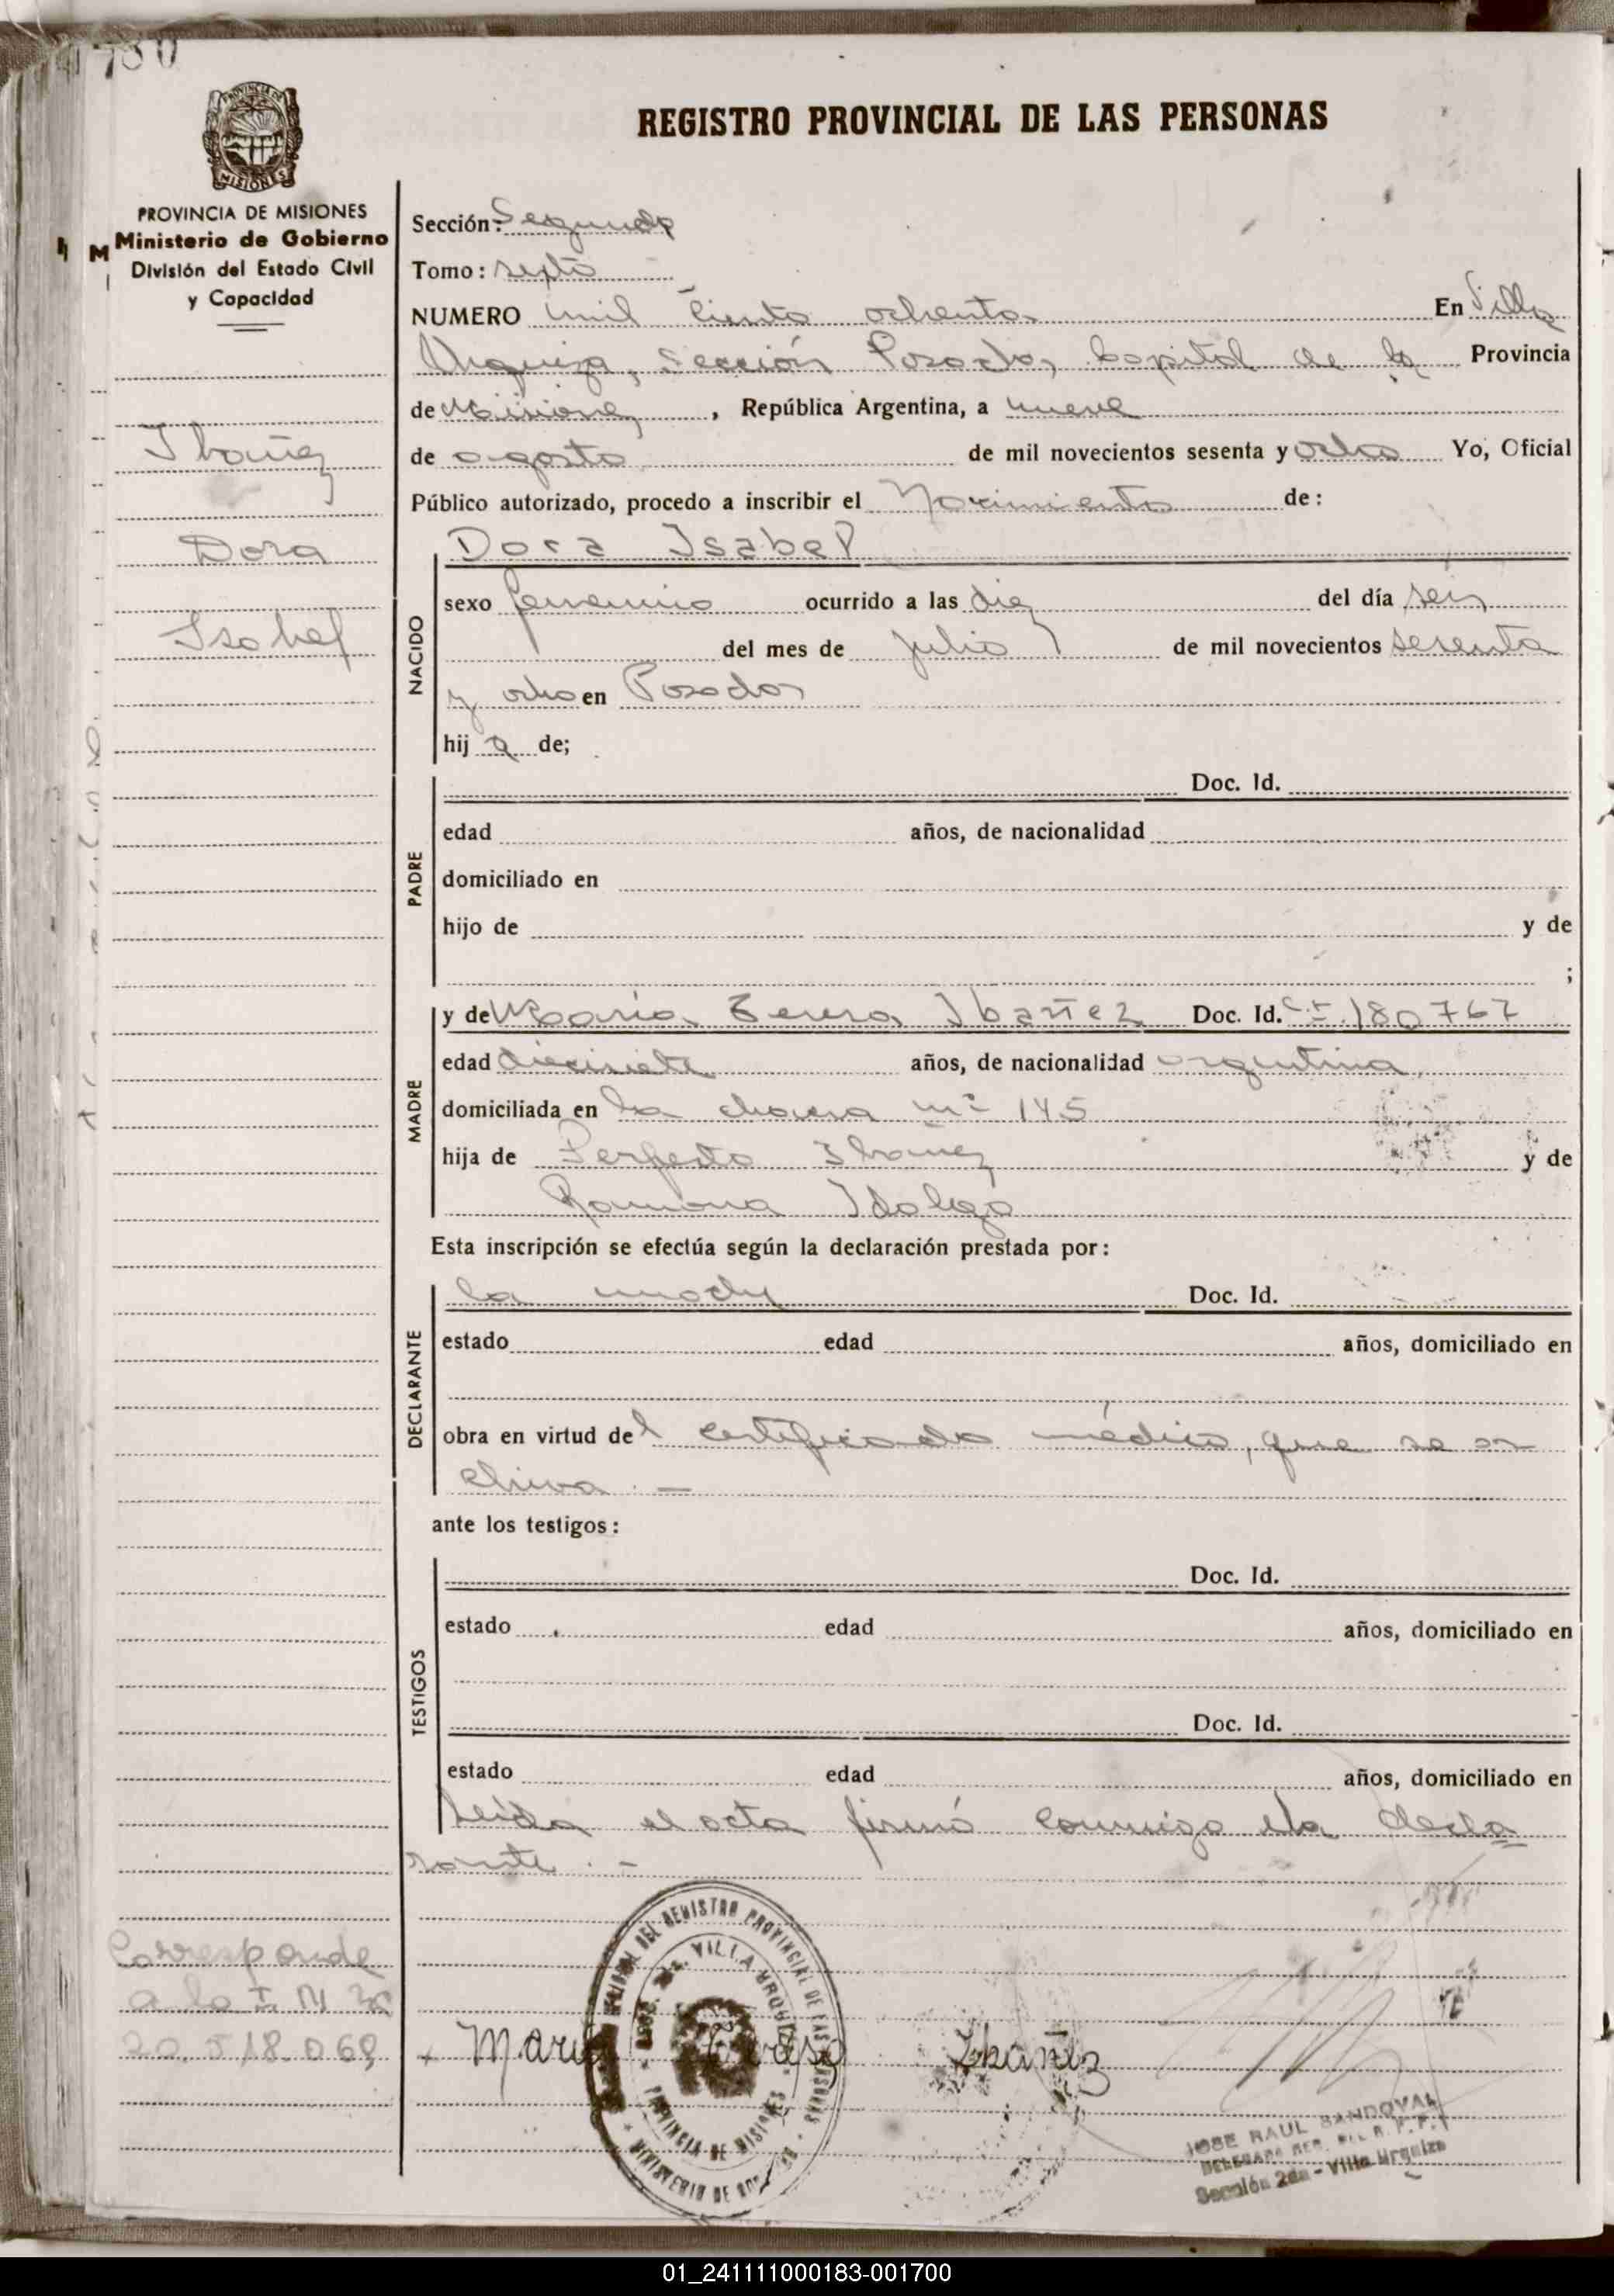 730
REGISTRO PROVINCIAL DE LAS PERSONAS
PROVINCIA DE MISIONES
MISIONES
PROVINCIA DE MISIONES
Ministerio de Gobierno
División del Estado Civil
y Capacidad
Ibañez
Dora
Isabel
Sección: Segunda
Tomo: septo
NUMERO mil ciento ochenta En Villa
Urquiza, Sección Posadas, Capital de la Provincia
de Misiones, República Argentina, a nueve
de agosto de mil novecientos sesenta y ocho Yo, Oficial
Público autorizado, procedo a inscribir el Nacimiento de:
NACIDO
Dora Isabel
sexo femenino ocurrido a las diez del día seis
del mes de julio de mil novecientos sesenta
y ocho en Posadas
hij a de;
PADRE
Doc. Id.
edad años, de nacionalidad
domiciliado en
hijo de y de
;
MADRE
y de María Teresa Ibañez Doc. Id. C.I. 180767
edad diecisiete años, de nacionalidad argentina
domiciliada en la chacra nº 145
hija de Perfecto Ibañez y de
Ramona Idalgo
Esta inscripción se efectúa según la declaración prestada por:
DECLARANTE
la madre Doc. Id.
estado edad años, domiciliado en
obra en virtud del certificado médico, que se ar
chiva. —
ante los testigos:
TESTIGOS
Doc. Id.
estado edad años, domiciliado en
Doc. Id.
estado edad años, domiciliado en
Leída el acta firmó conmigo la decla
rante. -
Corresponde
a la I. M
20.518.069
Maria Teresa Ibañez
DEL REGISTRO PROVINCIAL DE LAS PERSONAS
VILLA URQUIZA
PROVINCIA DE MISIONES
MINISTERIO DE
JOSE RAUL SANDOVAL
DELEGADO REG. R.P.P.
Sección 2da - Villa Urquiza
01_241111000183-001700